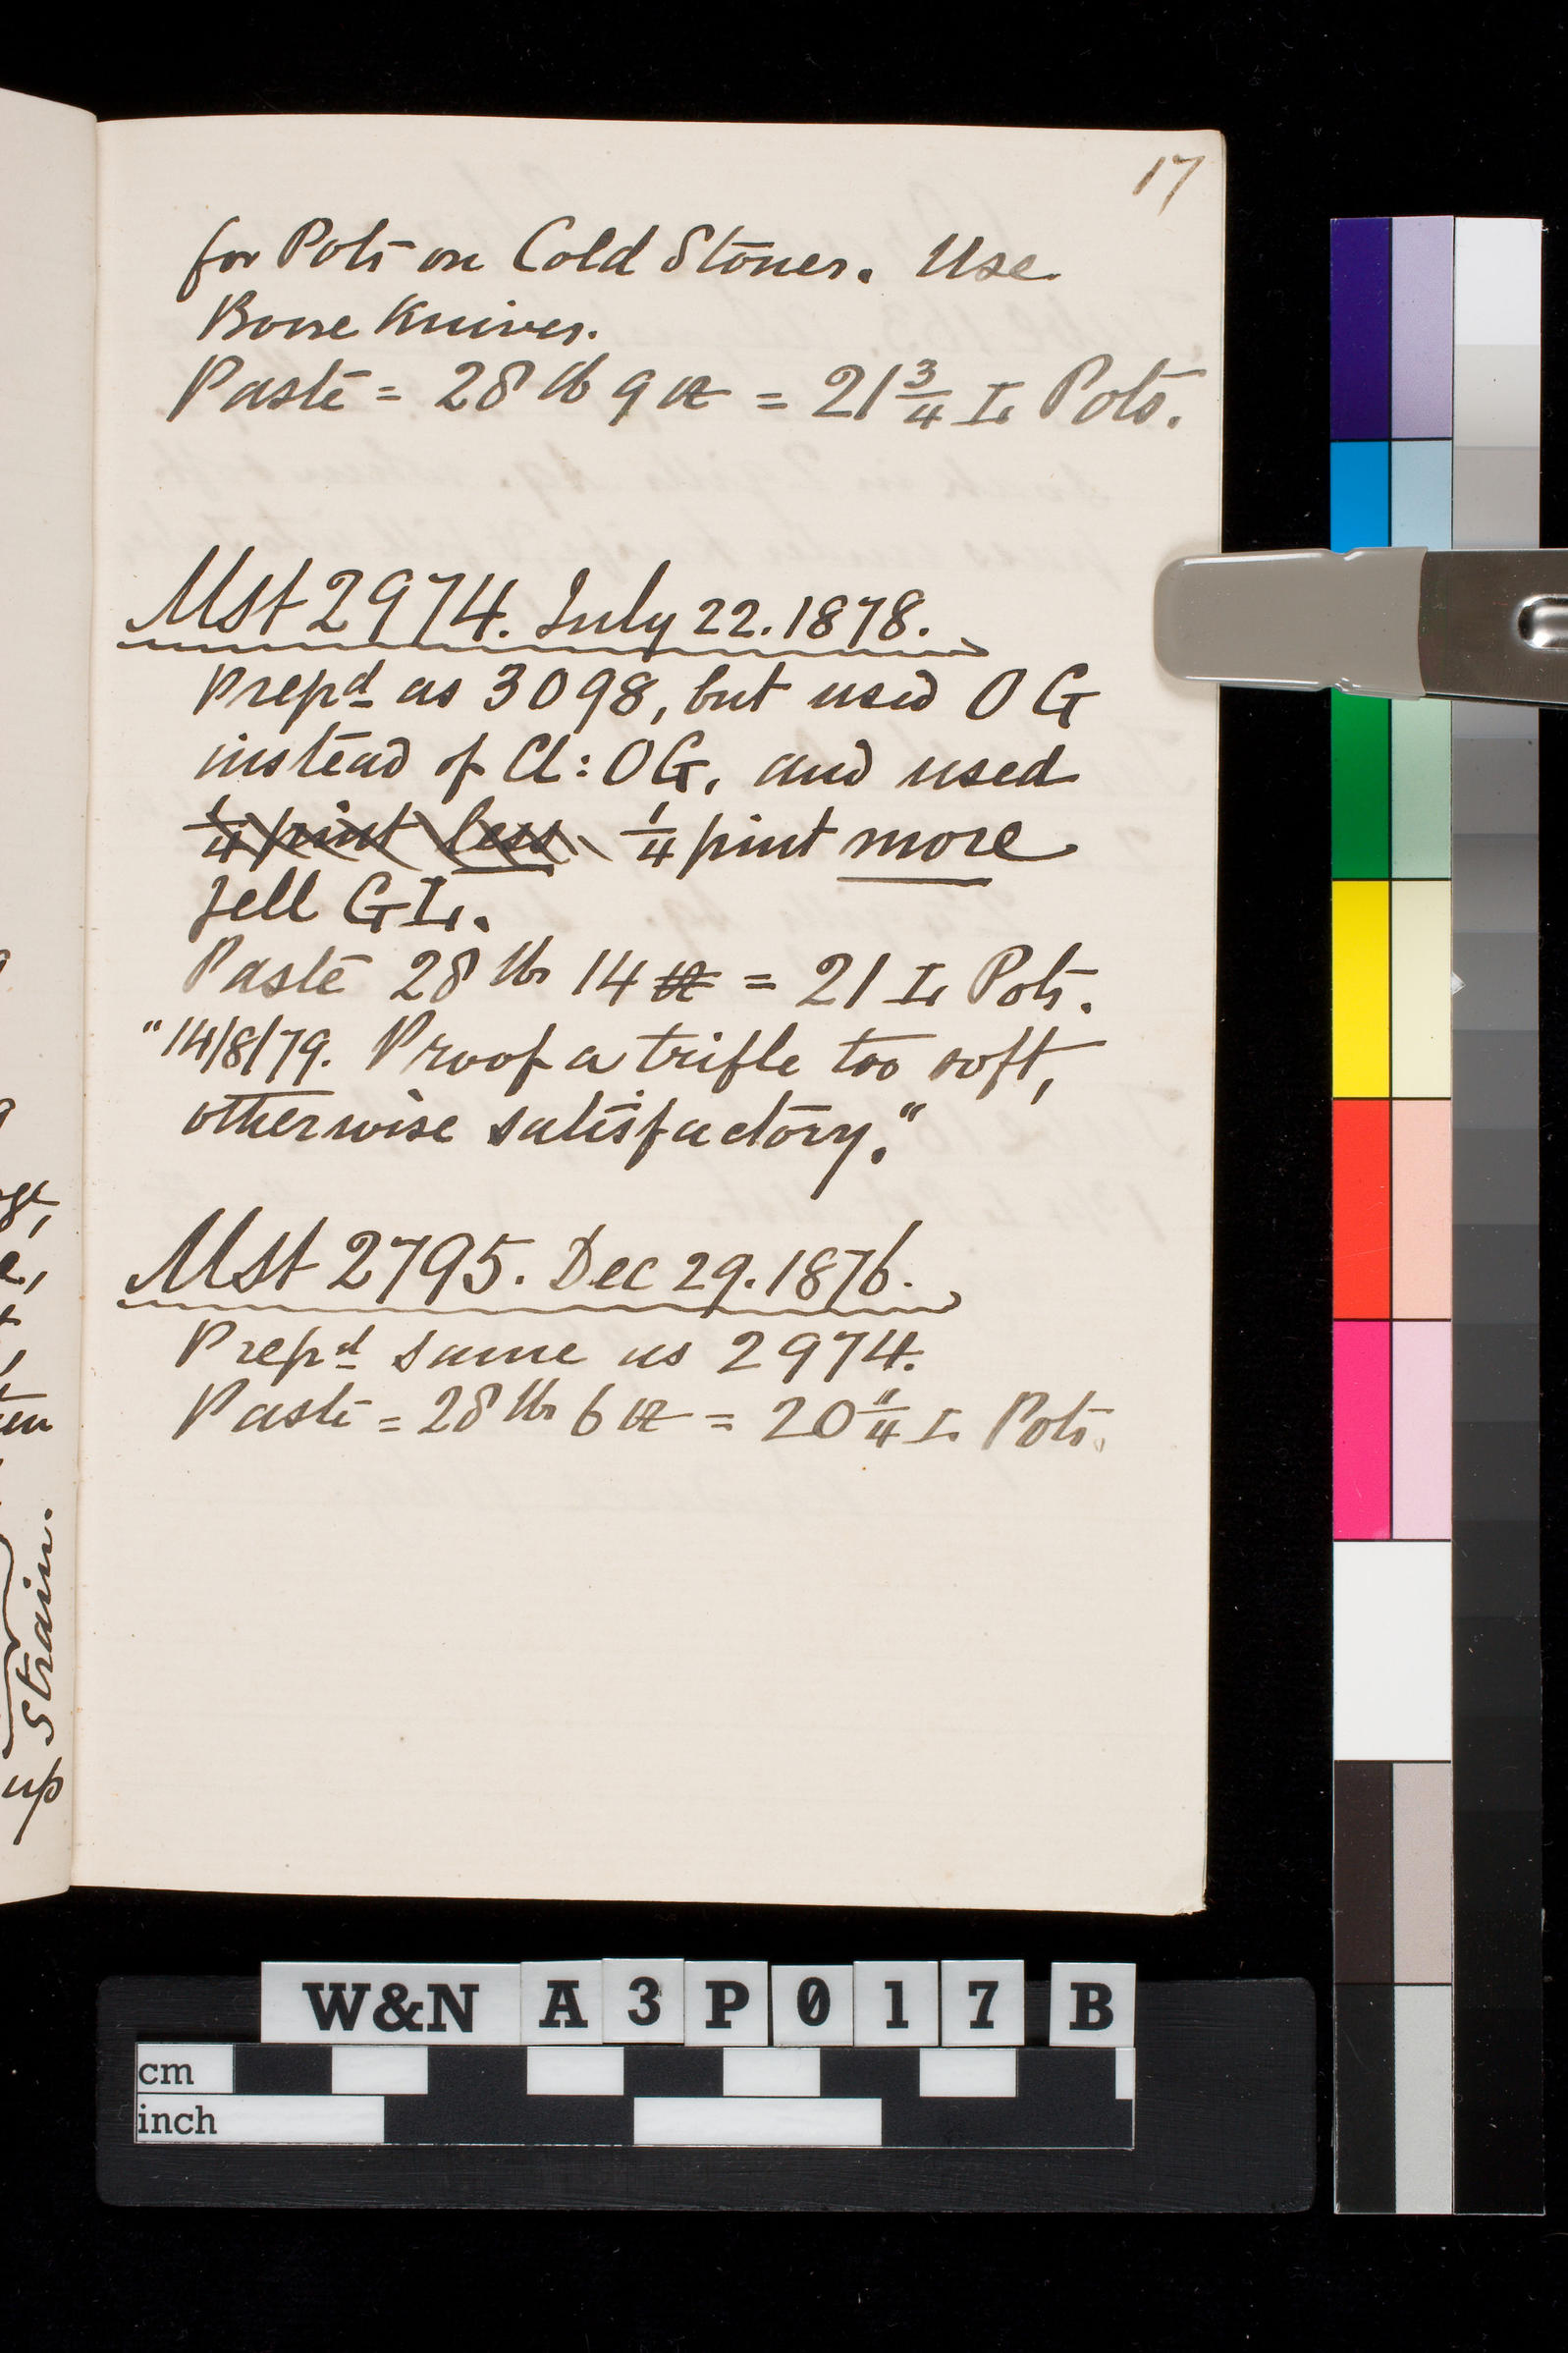 17
for Pots on Cold Stones. Use
Bone Knives.
Paste = 28 lb 9 oz = 21 3/4 L Pots.
Mst 2974. July 22. 1878.
Prepd as 3098, but used OG
instead of Cl: OG, and used
1/4 pint less 1/4 pint more
Jell GL.
Paste 28 lbs 14 oz = 21 L Pots.
"14/8/79. Proof a trifle too soft,
otherwise satisfactory."
Mst 2795. Dec 29. 1876.
Prepd same as 2974.
Paste = 28 lbs 6 oz = L Pots.
Strain.
up
W&N A3P017 B
cm
inch